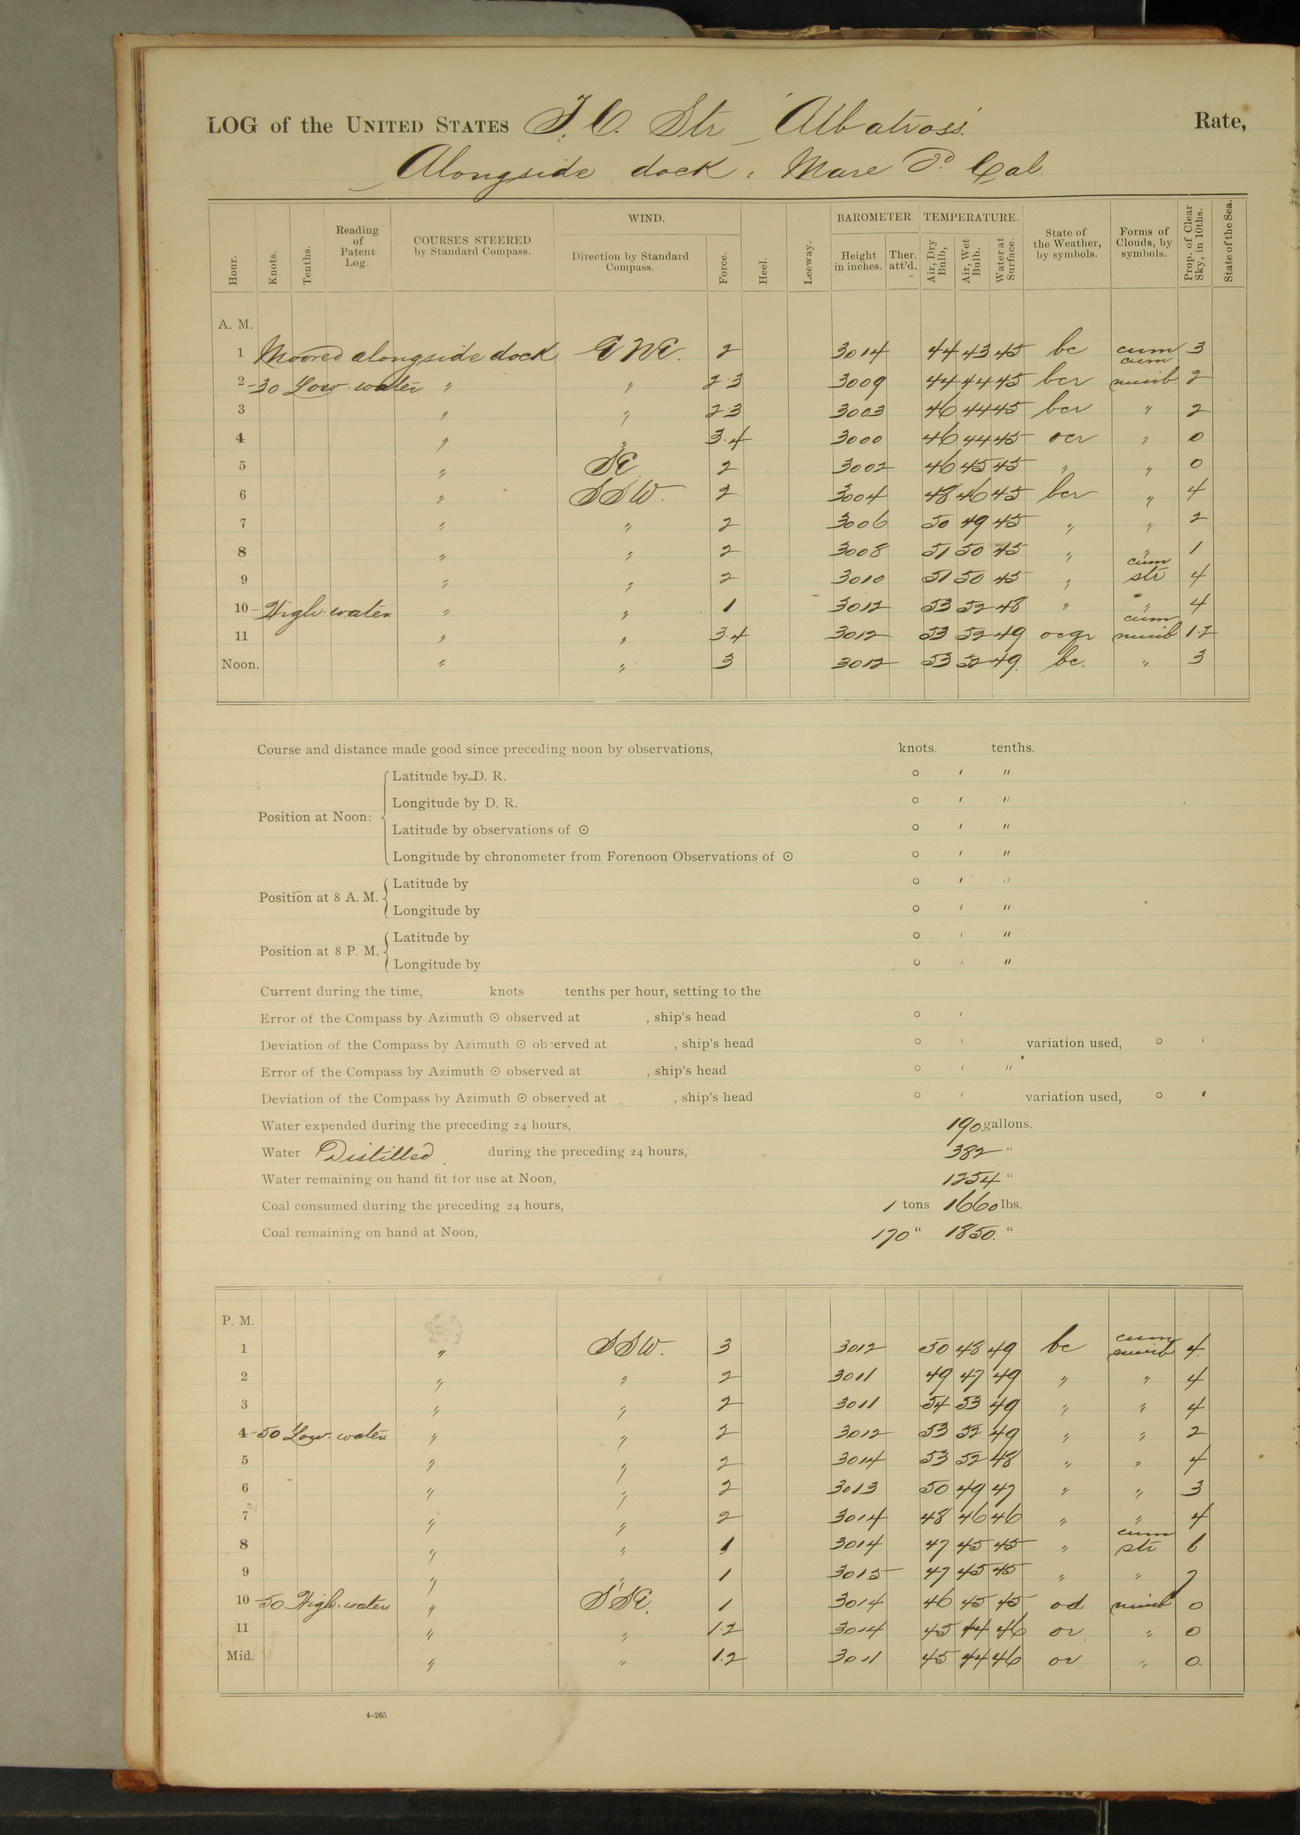 LOG of the UNITED STATES F. C. Str "Albatross" Rate,
Alongside dock, Mare Id Cal.
Hour. Knots. Tenths. Reading of Patent Log. COURSES STEERED by Standard Compass. WIND. Direction by Standard Compass. Force. Heel. Leeway. BAROMETER. Height in inches. Ther. att'd. TEMPERATURE. Air, Dry Bulb, Air, Wet Bulb. Water at Surface. State of the Weather, by symbols. Forms of Clouds, by symbols. Prop. of Clear Sky, in 10ths. State of the Sea.
A. M.
1 Moored alongside dock 2 3014 44 43 45 bc cum 3
2-30 Low water " " 2-3 3009 44 44 45 bcr cum nimb 2
3 " " 2-3 3003 46 44 45 bcr " 2
4 " " 3-4 3000 46 44 45 ocr " 0
5 " SE 2 3002 46 45 45 " " 0
6 " SSW. 2 3004 48 46 45 bcr " 4
7 " " 2 3006 50 49 45 " " 2
8 " " 2 3008 51 50 45 " " 1
9 " " 2 3010 51 50 45 " cum str 4
10- High water " " 1 3012 53 52 48 " " 4
11 " " 3-4 3012 53 52 49 ocqr cum nimb 1-2
Noon. " " 3 3012 53 52 49 bc. " 3
Course and distance made good since preceding noon by observations, knots. tenths.
Position at Noon: Latitude by D. R. ° ′ ″
Longitude by D. R. ° ′ ″
Latitude by observations of ☉ ° ′ ″
Longitude by chronometer from Forenoon Observations of ☉ ° ′ ″
Position at 8 A. M. Latitude by ° ′ ″
Longitude by ° ′ ″
Position at 8 P. M. Latitude by ° ′ ″
Longitude by ° ′ ″
Current during the time, knots tenths per hour, setting to the
Error of the Compass by Azimuth ☉ observed at , ship's head ° ′
Deviation of the Compass by Azimuth ☉ observed at , ship's head ° ′ variation used, ° ′
Error of the Compass by Azimuth ☉ observed at , ship's head ° ′ ″
Deviation of the Compass by Azimuth ☉ observed at , ship's head ° ′ variation used, ° ′
Water expended during the preceding 24 hours, 190 gallons.
Water Distilled during the preceding 24 hours, 382 "
Water remaining on hand fit for use at Noon, 1254 "
Coal consumed during the preceding 24 hours, 1 tons 1660 lbs.
Coal remaining on hand at Noon, 170 " 1850. "
P. M.
1 " SSW. 3 3012 50 48 49 bc cum nimb 4
2 " " 2 3011 49 47 49 " " 4
3 " " 2 3011 54 53 49 " " 4
4-50 Low water " " 2 3012 53 52 49 " " 2
5 " " 2 3014 53 52 48 " " 4
6 " " 2 3013 50 49 47 " " 3
7 " " 2 3014 48 46 46 " " 4
8 " " 1 3014 47 45 45 " cum str 6
9 " " 1 3015 47 45 45 " " 7
10-50 High water " SSE. 1 3014 46 45 45 od nimb 0
11 " " 1-2 3014 45 44 46 or " 0
Mid. " " 1-2 3011 45 44 46 or " 0
4-265